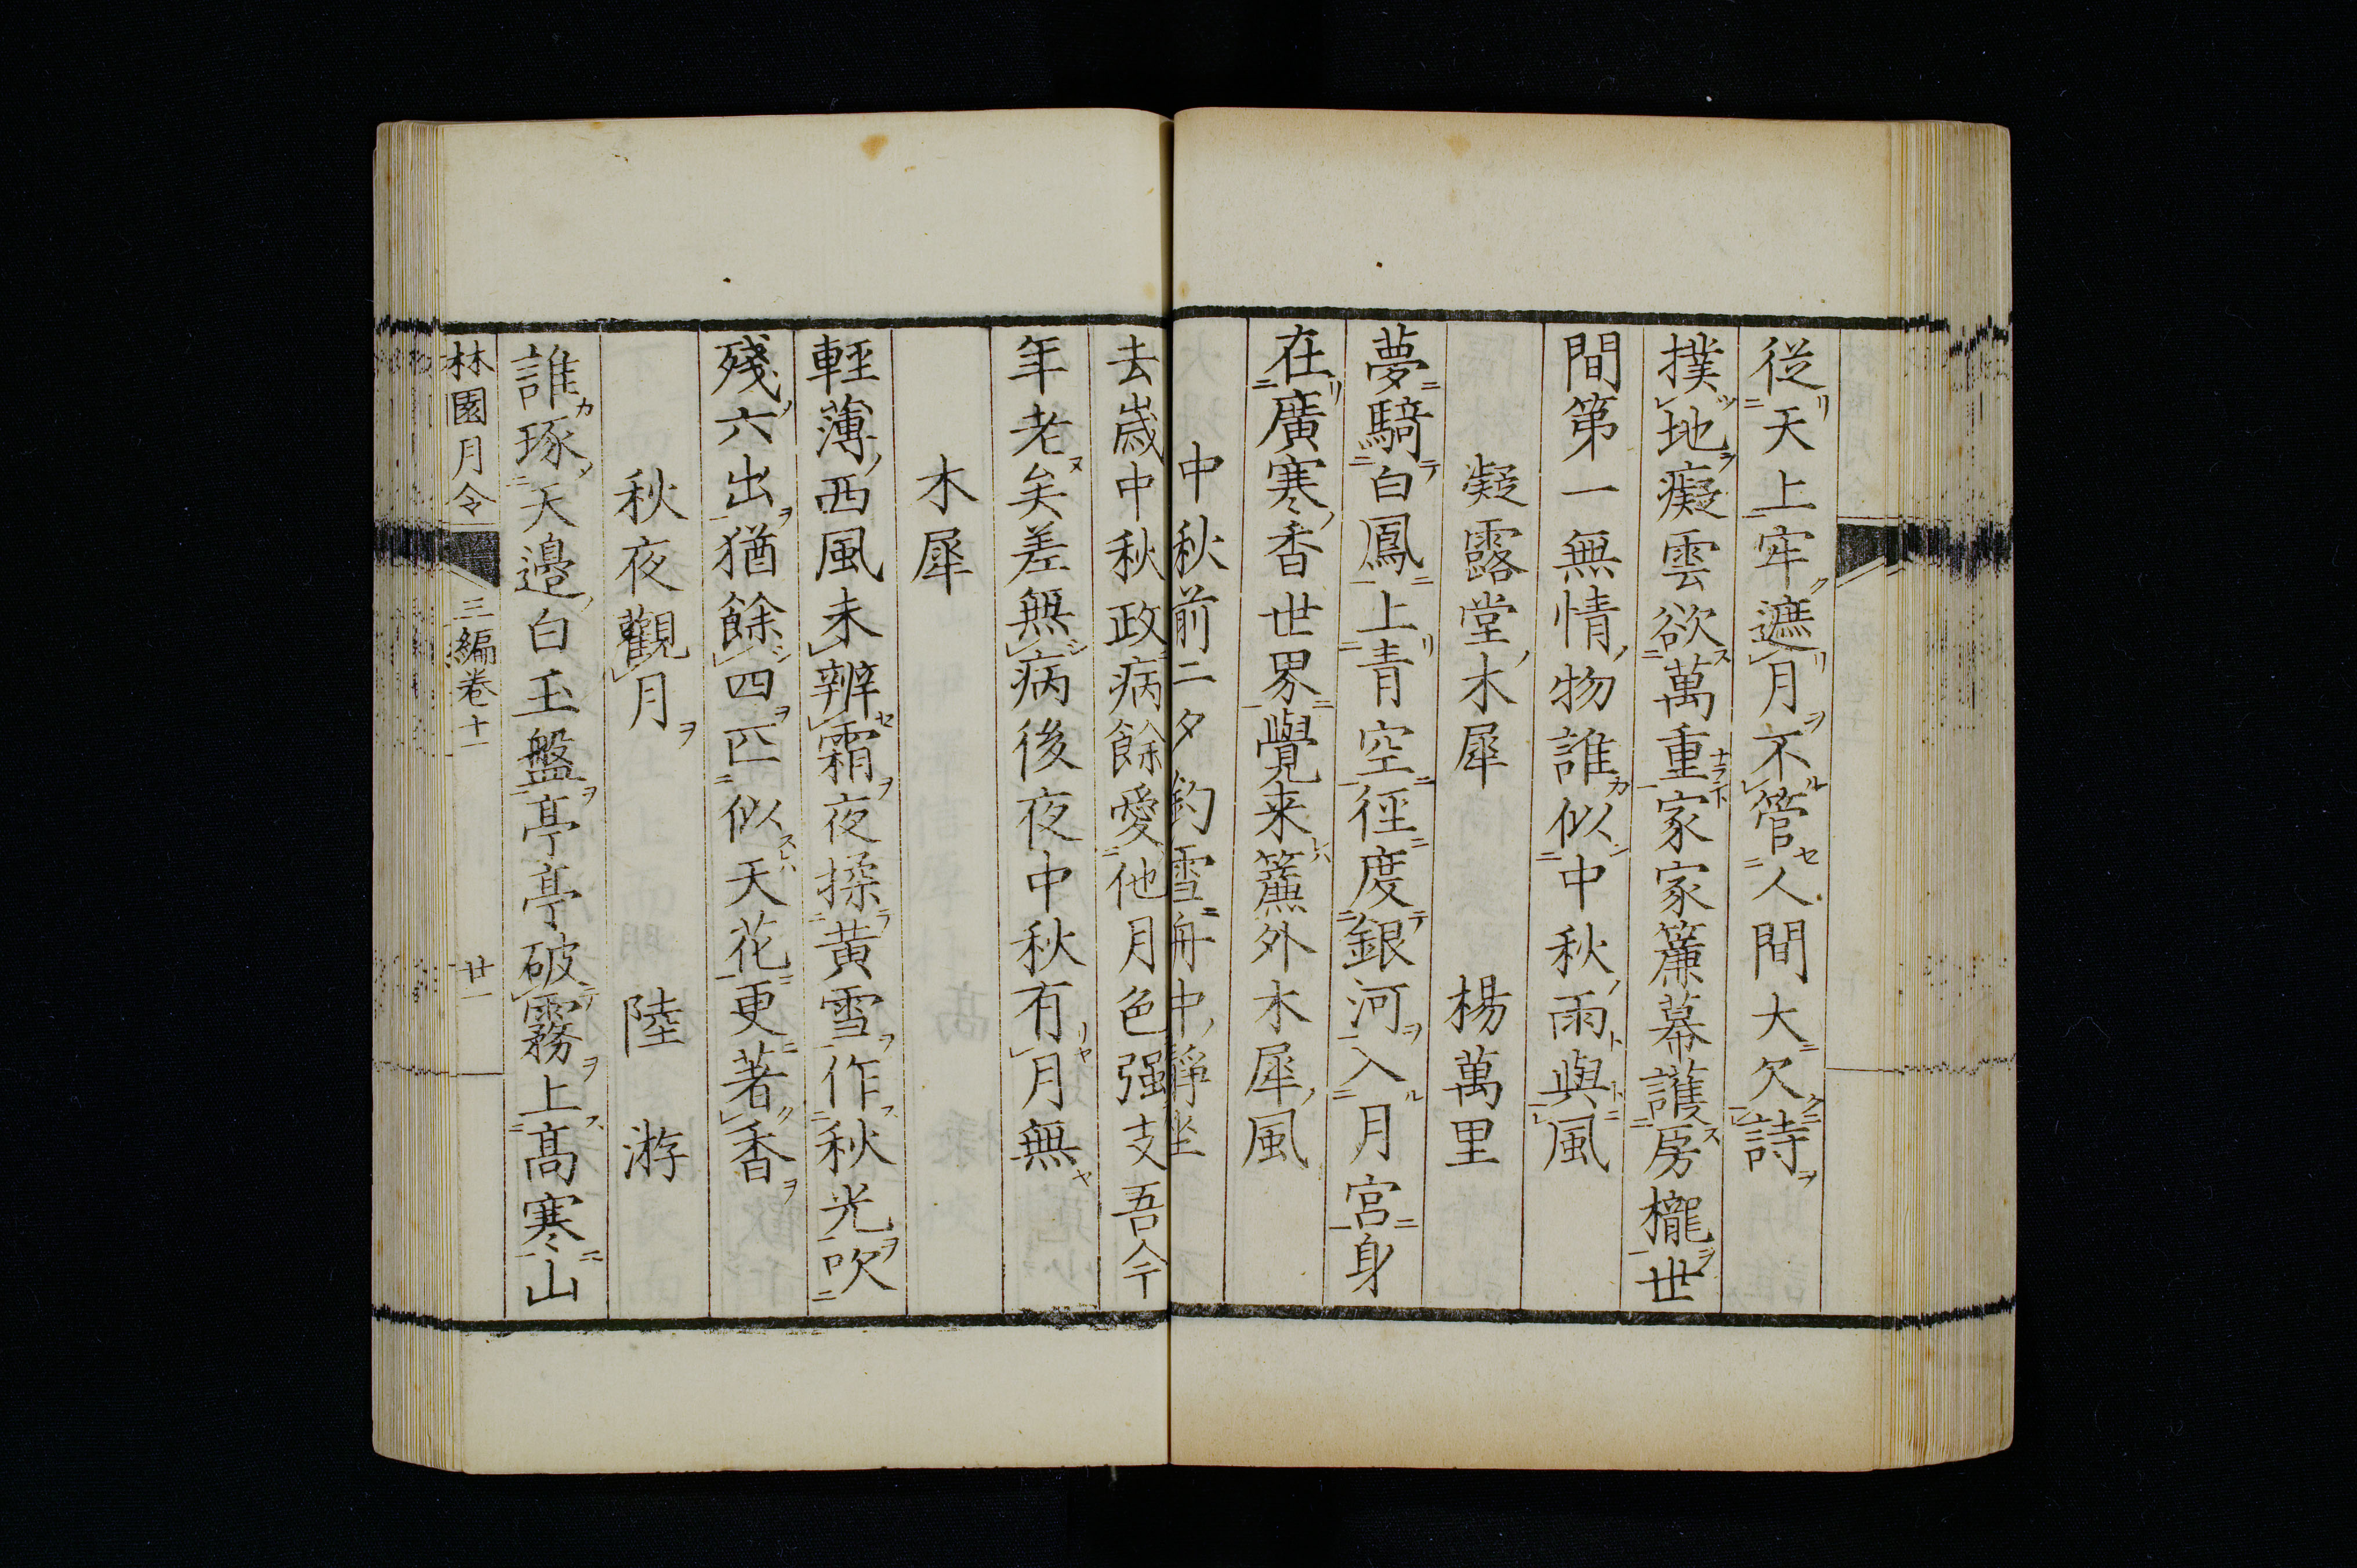 従天上牢遮月不管人間大欠詩
撲地癡雲欲萬重家家簾幕護房櫳世
間第一無情物誰似中秋雨與風
凝露堂木犀　楊萬里
夢騎白鳳上青空徑度銀河入月宮身
在廣寒香世界覺来簾外木犀風
中秋前二夕釣雪舟中靜坐
去歳中秋政病餘愛他月色强支吾今
年老矣差無病後夜中秋有月無
木犀
軽薄西風未辨霜夜揉黄雪作秋光吹
殘六出猶餘四匹似天花更著香
秋夜觀月　陸游
誰琢天邊白玉盤亭亭破霧上高寒山
林園月令　三編卷十一　廿一